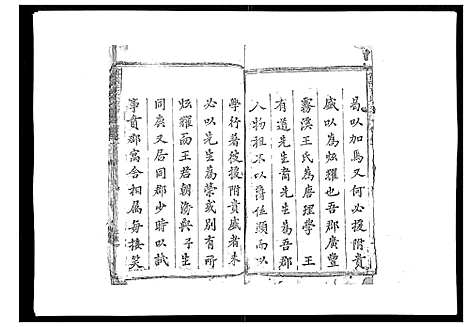 曷以加焉又何必援附貴
盛以為炫耀也吾郡廣豐
霧溪王氏為唐理學王
有道先生裔先生為吾郡
人物祖不以爵位顯而以
學行著彼援附貴盛者未
必以先生為榮或別有所
炫耀而王君朝海與予生
同庚又居同郡少時以試
事賁郡寓合相屬每接笑